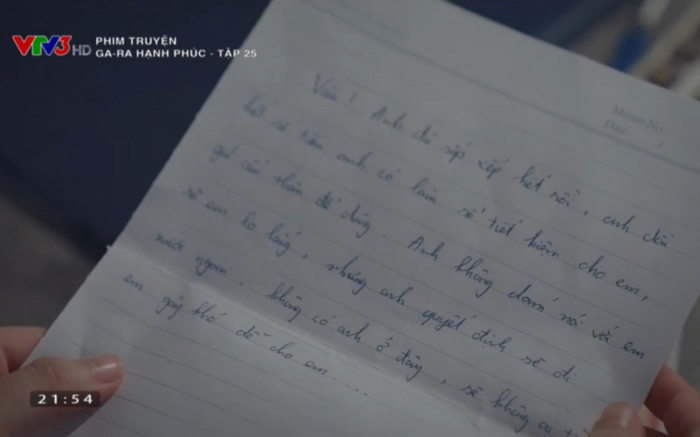 VTV3 HD
PHIM TRUYỆN
GA-RA HẠNH PHÚC - TẬP 25
Memo No.
Date
Vân! Anh đã sắp xếp hết rồi, anh dồn
hết số tiền anh có làm sổ tiết kiệm cho em,
giữ cẩn thận để dùng. Anh không dám nói với em
sợ em lo lắng, nhưng anh quyết định sẽ đi
nước ngoài, không có anh ở đây, sẽ không có
em gây khó dễ cho em.....
21:54